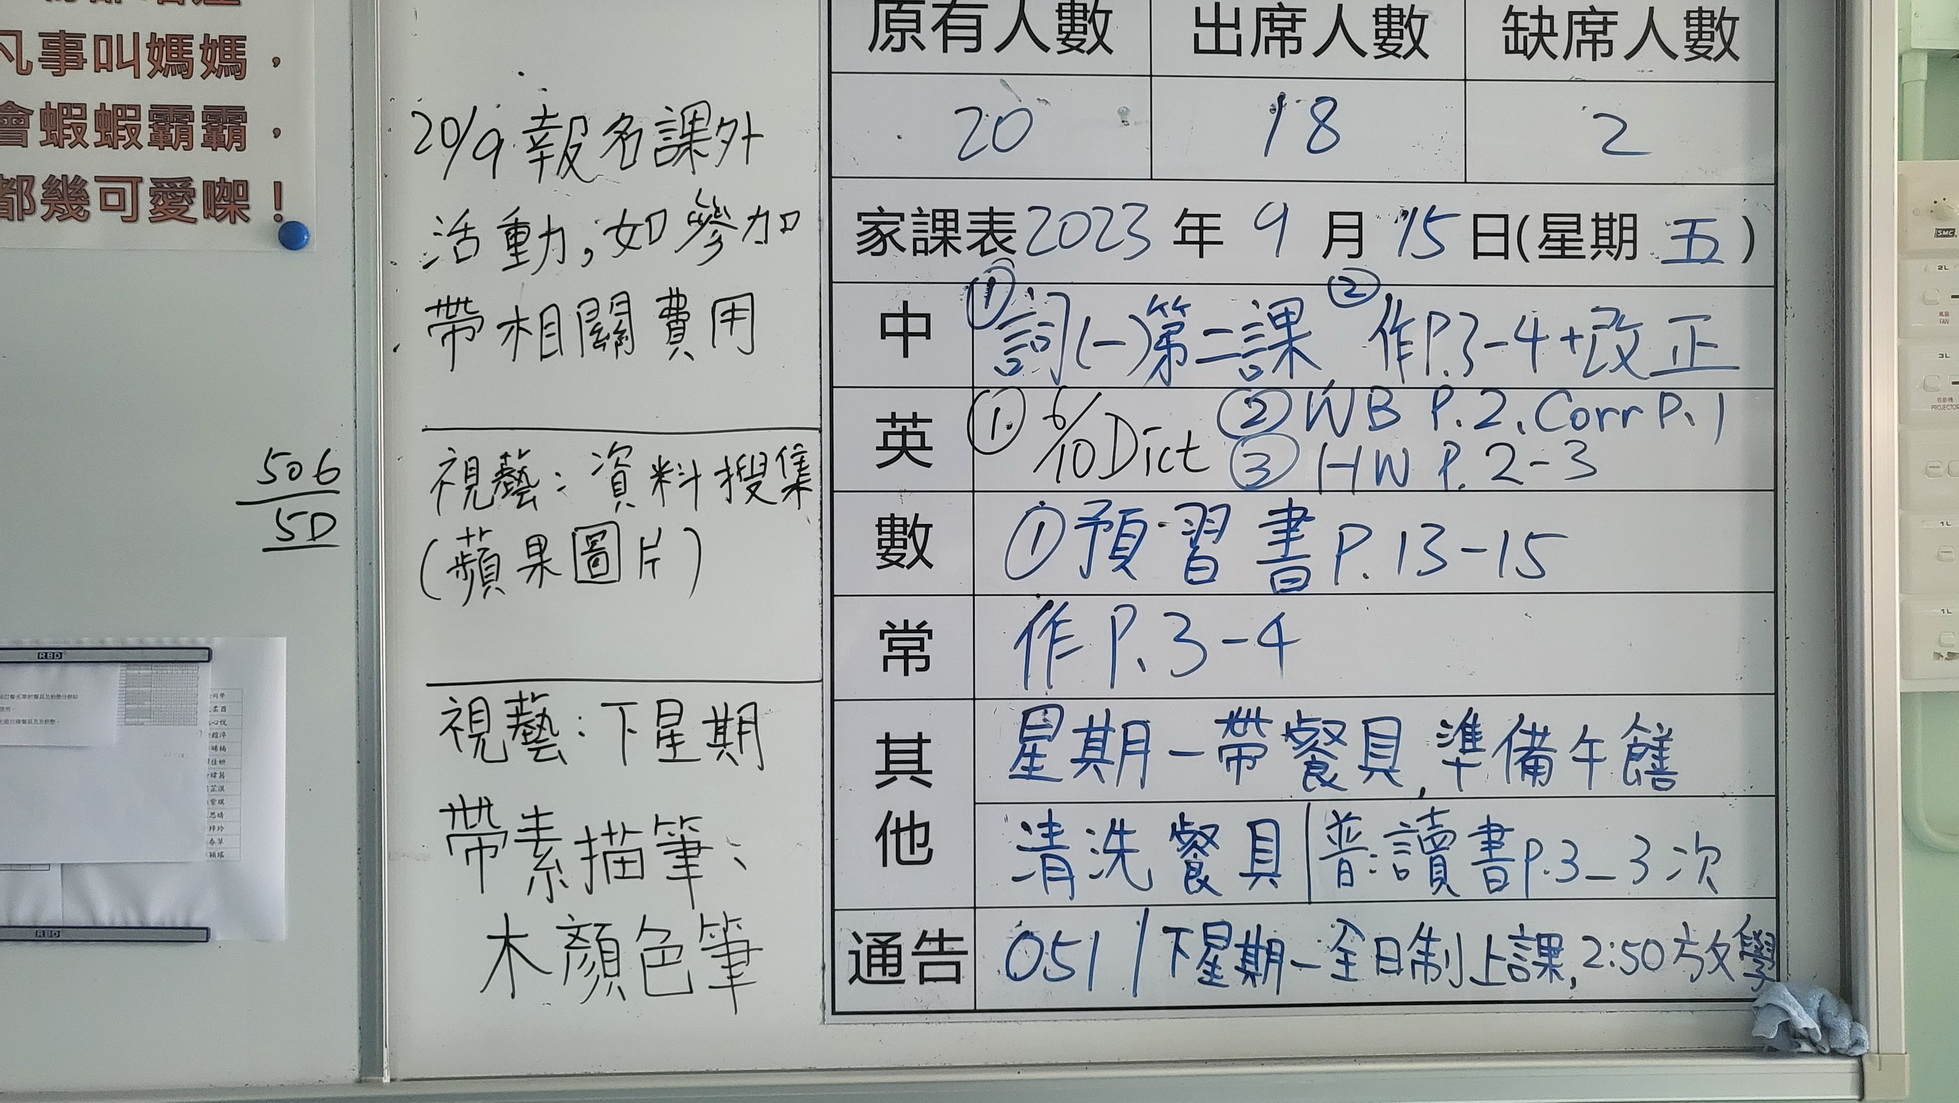 凡事叫媽媽，
會蝦蝦霸霸，
都幾可愛㗎！
506
5D
20/9 報名課外
活動，如參加
帶相關費用
視藝：資料搜集
(蘋果圖片)
視藝：下星期
帶素描筆、
木顏色筆
原有人數 出席人數 缺席人數
20 18 2
家課表 2023 年 9 月 15 日(星期 五)
中 ① 詞(一)第二課 ② 作P.3-4+改正
英 ① 6/10 Dict ② WB P.2, Corr P.1
③ HW P.2-3
數 ① 預習書 P.13-15
常 作 P.3-4
其他 星期一帶餐具,準備午饍
清洗餐具 | 普:讀書P.3_3次
通告 051 / 下星期一全日制上課, 2:50放學
RBD
RBD